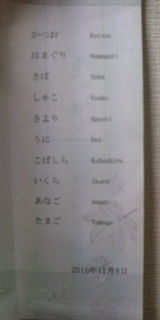 かつお Katsuo
はまぐり Hamaguri
さば Saba
しゃこ Syako
さより Sayori
うに Uni
こばしら Kobashira
いくら Ikura
あなご Anago
たまご Tamago
2010年11月8日